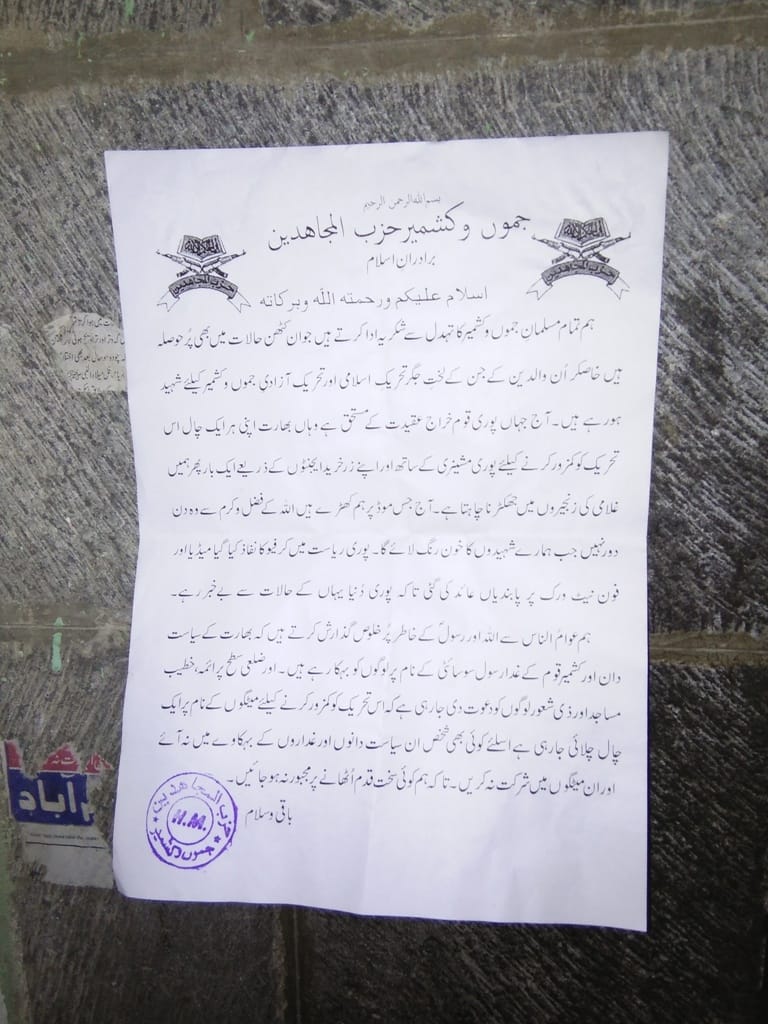 بسم اللہ الرحمن الرحیم
جموں و کشمیر حزب المجاہدین
برادرانِ اسلام
اسلام علیکم ورحمتہ اللہ وبرکاتہ
ہم تمام مسلمانِ جموں و کشمیر کا تہدل سے شکریہ ادا کرتے ہیں جو ان کٹھن حالات میں بھی پُر حوصلہ
ہیں خاصکر اُن والدین کے جن کے لختِ جگر تحریک اسلامی اور تحریک آزادیِ جموں و کشمیر کیلئے شہید
ہو رہے ہیں۔ آج جہاں پوری قوم خراج عقیدت کے مستحق ہے وہاں بھارت اپنی ہر ایک چال اس
تحریک کو کمزور کرنے کیلئے پوری مشینری کے ساتھ اور اپنے زر خرید ایجنٹوں کے ذریعے ایک بار پھر ہمیں
غلامی کی زنجیروں میں جھکڑنا چاہتا ہے۔ آج جس موڈ پر ہم کھڑے ہیں اللہ کے فضل و کرم سے وہ دن
دور نہیں جب ہمارے شہیدوں کا خون رنگ لائے گا۔ پوری ریاست میں کرفیو کا نفاذ کیا گیا میڈیا اور
فون نیٹ ورک پر پابندیاں عائد کی گئی تاکہ پوری دُنیا یہاں کے حالات سے بے خبر رہے۔
ہم عوام الناس سے اللہ اور رسولؐ کے خاطر پُر خلوص گذارش کرتے ہیں کہ بھارت کے سیاست
دان اور کشمیر قوم کے غدار سول سوسائٹی کے نام پر لوگوں کو بہکا رہے ہیں۔ اور ضلعی سطح پر ائمہ، خطیب
مساجد اور ذی شعور لوگوں کو دعوت دی جارہی ہے کہ اس تحریک کو کمزور کرنے کیلئے میٹنگوں کے نام پر ایک
چال چلائی جارہی ہے اسلئے کوئی بھی شخص ان سیاست دانوں اور غداروں کے بہکاوے میں نہ آئے
اور ان میٹنگوں میں شرکت نہ کریں۔ تاکہ ہم کوئی سخت قدم اُٹھانے پر مجبور نہ ہو جائیں۔
باقی وسلام
حزب المجاھدین
H.M.
جموں و کشمیر
حزب المجاهدين
حزب المجاهدين
آباد